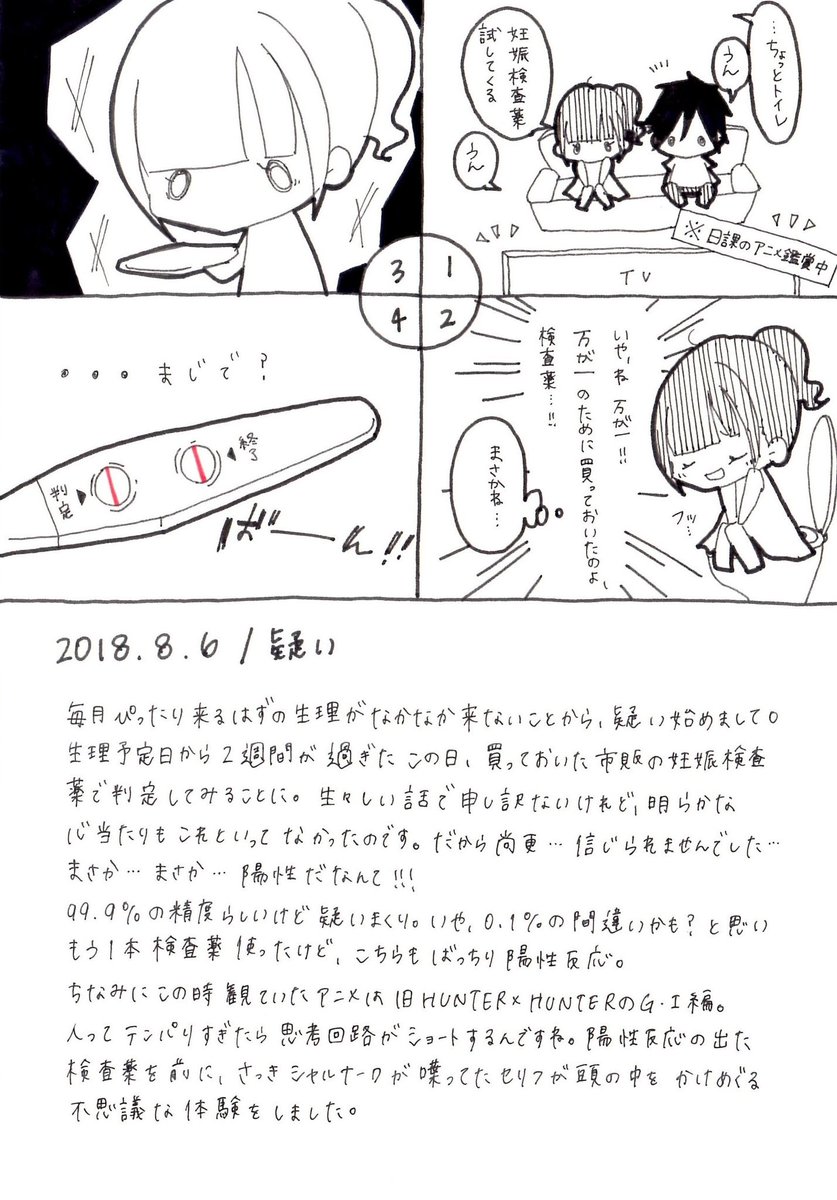 …ちょっとトイレ
うん
妊娠検査薬
試してくる
うん
※日課のアニメ鑑賞中
TV
1
2
3
4
いや、ね 万が一!!
万が一のために買っておいたのよ、
検査薬…!!
まさかね…
フッ…
・・・まじで?
判定
終了
ばーーん!!
2018.8.6/疑い
毎月ぴったり来るはずの生理がなかなか来ないことから、疑い始めまして。
生理予定日から2週間が過ぎたこの日、買っておいた市販の妊娠検査
薬で判定してみることに。生々しい話で申し訳ないけれど、明らかな
心当たりもこれといってなかったのです。だから尚更…信じられませんでした…
まさか…まさか…陽性だなんて!!!
99.9%の精度らしいけど疑いまくり。いや、0.1%の間違いかも?と思い
もう1本検査薬使ったけど、こちらもばっちり陽性反応。
ちなみにこの時観ていたアニメは旧HUNTER×HUNTERのG・I編。
人ってテンパりすぎたら思考回路がショートするんですね。陽性反応の出た
検査薬を前に、さっきシャルナークが喋ってたセリフが頭の中をかけめぐる
不思議な体験をしました。